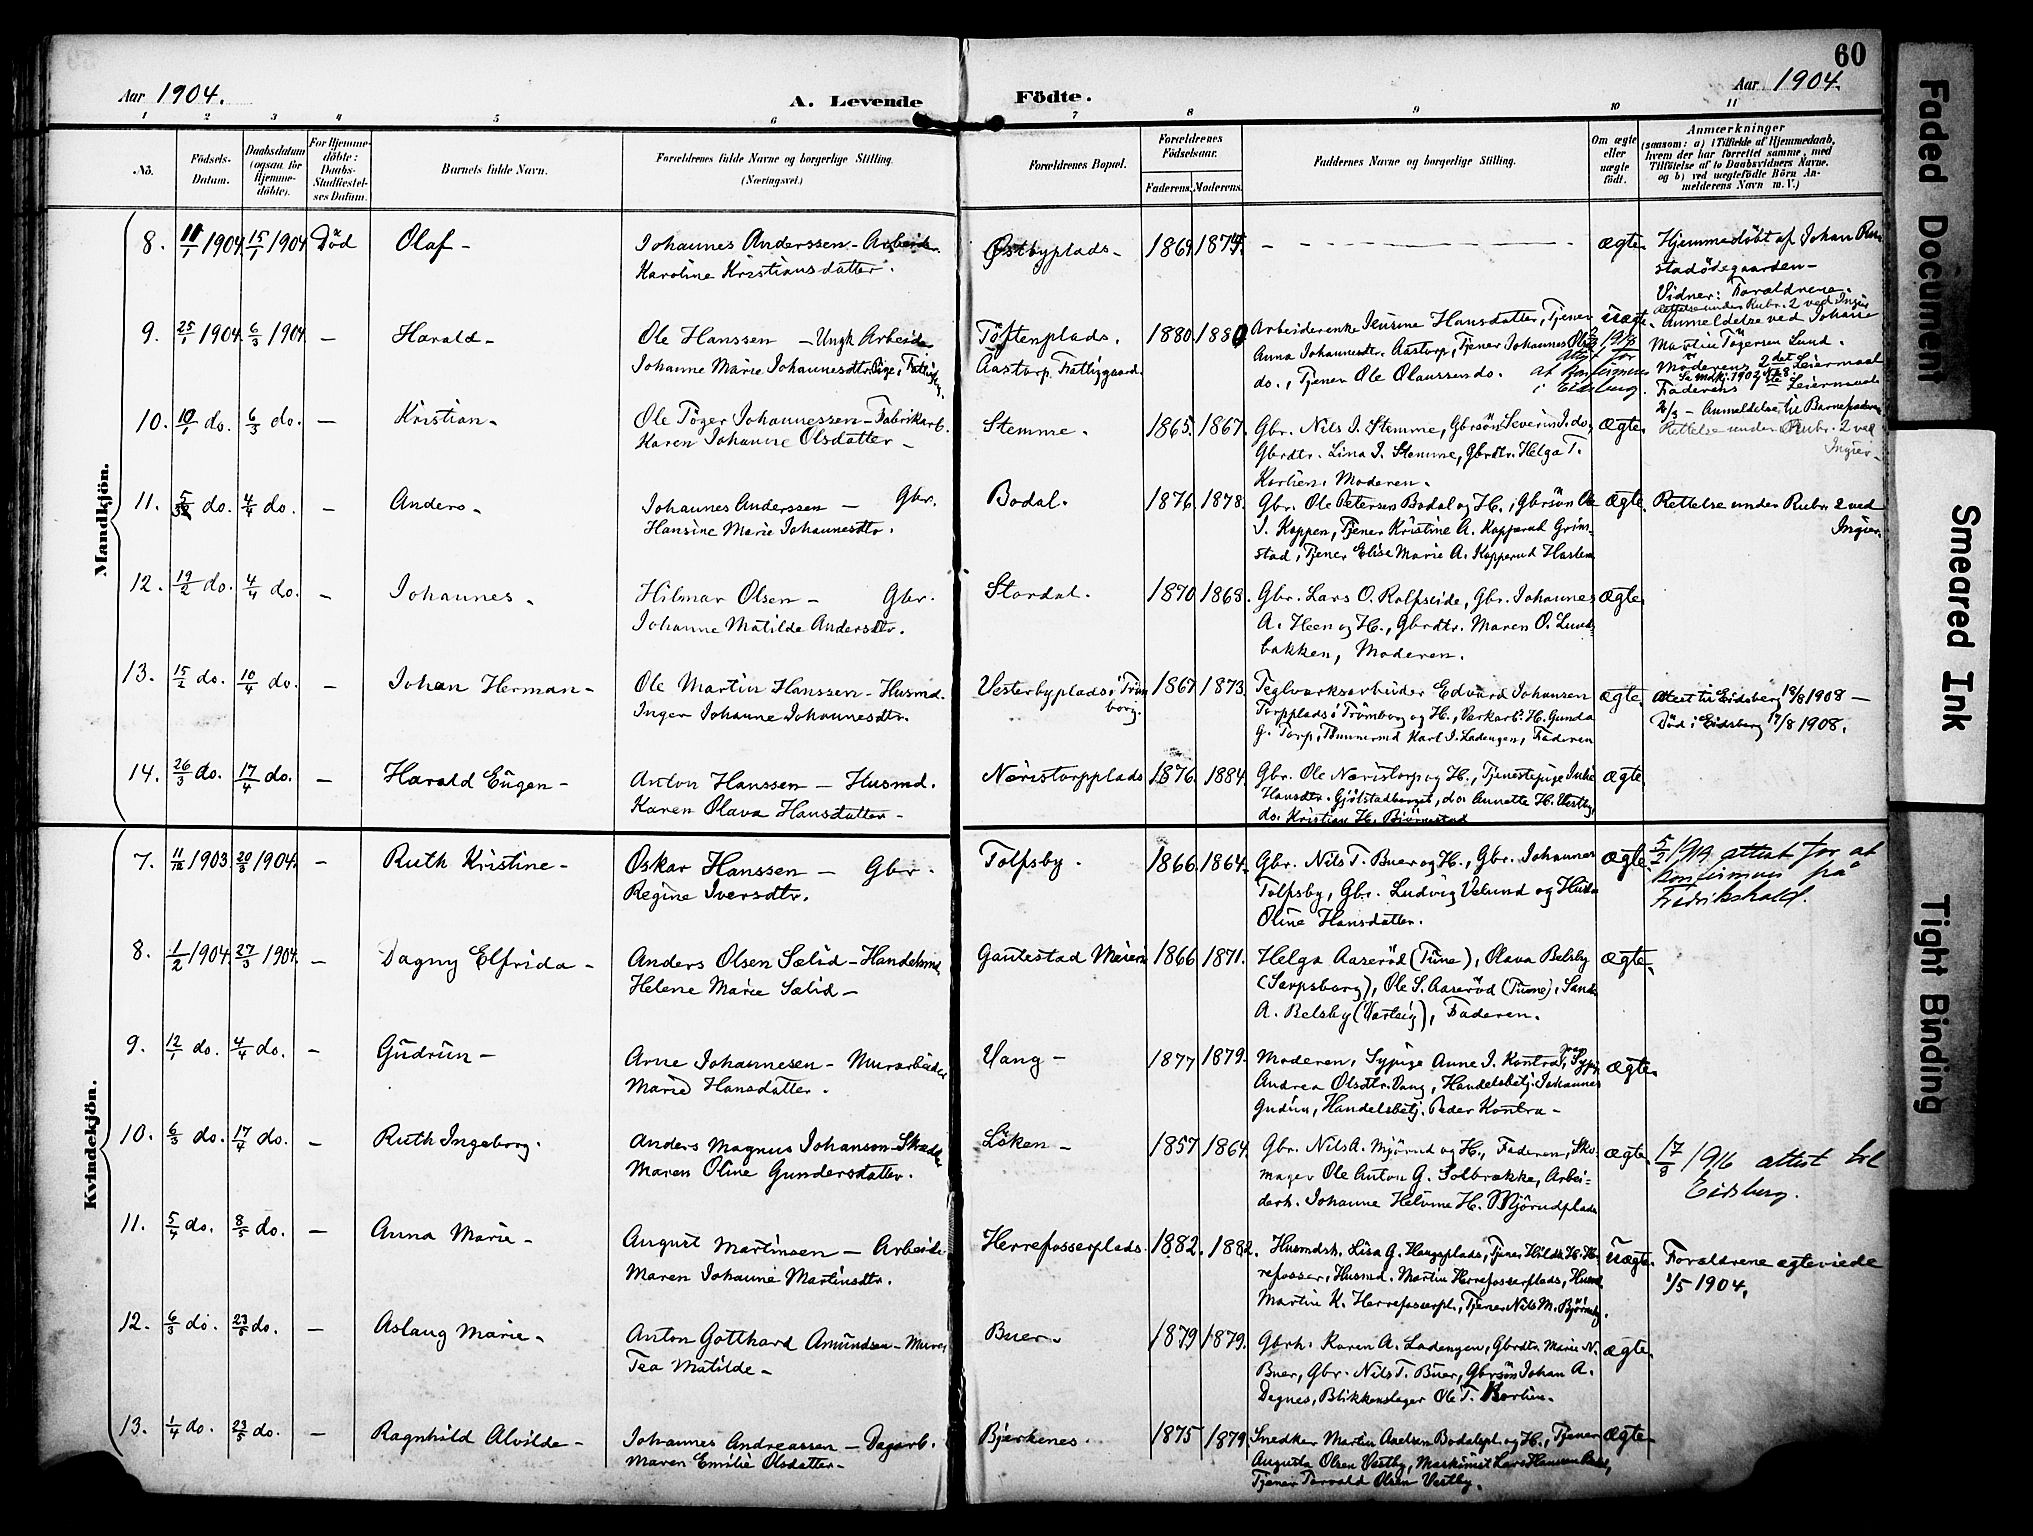 60
Aar 1904.
A. Levende Födte.
Aar 1904.
1 2 3 4 5 6 7 8 9 10 11
No.
Födsels-Datum.
Daabsdatum (ogsaa for Hjemme-döbte).
For Hjemme-döbte: Daabs-Stadfæstel-ses Datum.
Barnets fulde Navn.
Forældrenes fulde Navne og borgerlige Stilling.
(Næringsvei.)
Forældrenes Bopæl.
Forældrenes Födselsaar.
Faderens. Moderens.
Faddernes Navne og borgerlige Stilling.
Om ægte eller uægte födt.
Anmærkninger
(saasom: a) i Tilfælde af Hjemmedaab,
hvem der har forrettet samme, med
Tilföielse af to Daabsvidners Navne.
og b) ved uægtefödte Börn An-
melderens Navn m. V.)
Mandkjön.
8. 11/1 1904 15/1 1904 Död Olaf - Johannes Anderssen - Arbeid. Østbyplads - 1869 1874. - ægte. Hjemmedöbt af Johan
Karoline Kristiansdatter. stadödegaarden -
Vidner: Forældrene.
Rettelse under Rubr. 2 ved Ingier
9. 25/1 1904 6/3 1904 - Harald - Ole Hanssen - Ungk. Arbeid. Töftenplads. 1880 1880 Arbeiderenke Hansdatter, Tjener uægte. Anmeldelse ved Johan
Johanne Marie Johannesdtr. Pige, Aastorp Fattiggaard. Anna Johannesdtr. Aastorp, Tjener Johannes Martin Tögersen Lund.
do., Tjener Ole Olaussen do. Moderens 2det Leiermaal
attest for at konfirmeres i Eidsberg. Faderens 1ste Leiermaal
10. 10/1 do. 6/3 do. - Kristian - Ole Töger Johannessen - Fabrikarb. Stemme. 1865. 1867. Gbr. Nils I. Stemme, Gbrsön Severin I. do, ægte. Rettelse under Rubr. 2 ved
Karen Johanne Olsdatter - Gbrdtr. Lina I. Stemme, Gbrdtr. Helga T. Ingier -
Korlien, Moderen.
11. 5/2 do. 4/4 do. - Anders - Johannes Anderssen - Gbr. Bodal. 1876. 1878. Gbr. Ole Petersen Bodal og H., Gbrsön Ole ægte. Rettelse under Rubr. 2 ved
Hansine Marie Johannesdtr. I. Koppen, Tjener Kristine A. Kopperud Grim- Ingier.
stad, Tjener Elise Marie A. Kopperud Haslem
12. 19/2 do. 4/4 do. - Johannes - Hilmar Olsen - Gbr. Stordal. 1870 1868. Gbr. Lars O. Rolfseide, Gbr. Johannes ægte.
Johanne Matilde Andersdtr. A. Heen og H., Gbrdtr. Maren O. Lund-
bakken, Moderen.
13. 15/2 do. 10/4 do. - Johan Herman - Ole Martin Hanssen - Husmd. Vesterbyplads i Tröm- 1867 1873. Teglværksarbeider Edvard Johansen ægte. Attest til Eidsberg 18/8 1908 -
Inger Johanne Johannesdtr. borg. Torpplads i Trömborg og H., Værkarb. H. Gunda Död i Eidsberg 17/8 1908.
G. Torp, Tömmermd Karl I. Ladengen, Faderen
14. 26/3 do. 17/4 do. - Harald Eugen - Anton Hanssen - Husmd. Næristorpplads 1876. 1884. Gbr. Ole Næristorp og H., Tjenestepige ægte.
Karen Olava Hansdatter - Hansdtr. Gjölstadberget, do. Annette H. Vestby,
do. Kristian H. Björnestad
Kvindekjön.
7. 11/12 1903 20/3 1904. - Ruth Kristine - Oskar Hanssen - Gbr. Tolfsby. 1866. 1864. Gbr. Nils T. Buer og H., Gbr. Johannes ægte 5/2 1919 attest for at
Regine Iversdtr. Tolfsby, Gbr. Ludvig Velund og Hustru konfirmeres på
Oline Hansdatter. Fredrikshald.
8. 1/2 1904. 27/3 1904. - Dagny Elfrida - Anders Olsen Sælid - Handelsmd. Gautestad Meieri 1866 1871. Helga Aaseröd (Tune), Olava Belsby ægte.
Helene Marie Sælid - (Sarpsborg), Ole S. Aaseröd (Tune),
A. Belsby (Varteig), Faderen.
9. 12/1 do. 4/4 do. - Gudrun - Arne Johannesen - Murarbeider Vang - 1877 1879. Moderen, Sypige Anne I. Kontra, ægte.
Marie Hansdatter. Andrea Olsdtr. Vang, Handelsbetj. Johannes
Gudim, Handelsbetj. Peder Kontra -
10. 6/3 do. 17/4 do. - Ruth Ingeborg. Anders Magnus Johanson - Skrædder Löken - 1857 1864. Gbr. Nils A. Mjörud og H., Faderen, Sko- ægte. 17/8 1916 attest til
Maren Oline Gundersdatter. mager Ole Anton G. Solbrække, Arbei- Eidsberg.
derh. Johanne Helvine H. Mjörudplads
11. 5/4 do. 8/5 do. - Anna Marie - August Martinsen - Arbeid. Herrefosserplads. 1882. 1882. Husmdsk. Lisa G. Haugsplads, Tjener Hilda H. Her- uægte. Forældrene egteviede
Maren Johanne Martinsdtr. refosser, Husmd. Martin Herrefosserplads, Husmd. 1/5 1904.
Martin K. Herrefosserpl., Tjener Nils M.
12. 6/3 do. 23/5 do. - Aslaug Marie - Anton Gotthard Amundsen - Murer Buer. 1879 1879. Gbrh. Karen A. Ladengen, Gbrdtr. Marie N. ægte.
Tea Matilde - Buer, Gbr. Nils T. Buer, Gbrsön Johan A.
Degnes, Blikkenslager Ole T. Korlien.
13. 1/4 do. 23/5 do. - Ragnhild Alvilde - Johannes Andreassen - Dagarb. Bjerkenes. 1875 1879. Snedker Martin Axelsen Bodalspl. og H., Tjener ægte
Maren Emilie Olsdatter - Augusta Olsen Vestby, Maskinist Lars Hansen
Tjener Torvald Olsen Vestby.
Faded Document
Smeared Ink
Tight Binding